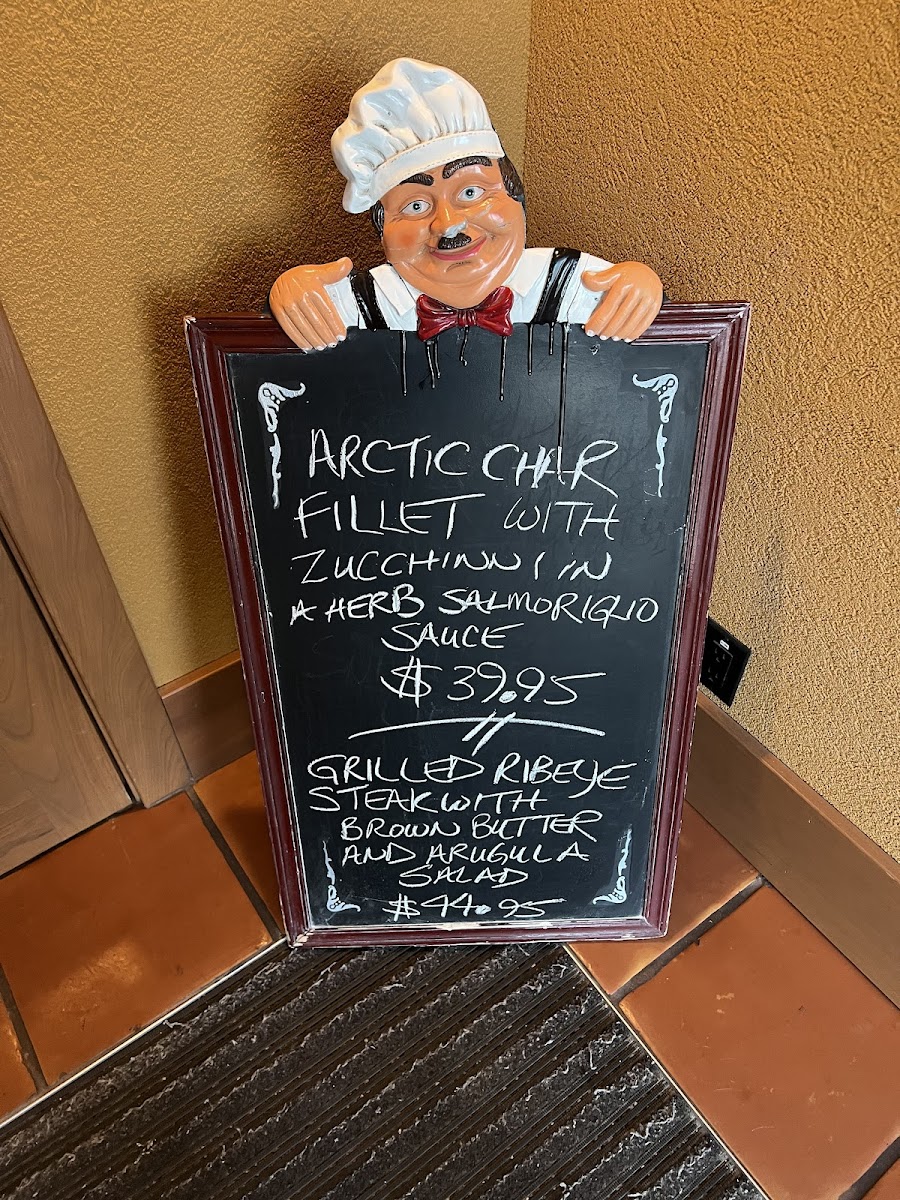 ARCTIC CHAR
FILLET WITH
ZUCCHINNI IN
A HERB SALMORIGLIO
SAUCE
$39.95
GRILLED RIBEYE
STEAK WITH
BROWN BUTTER
AND ARUGULA
SALAD
$44.95